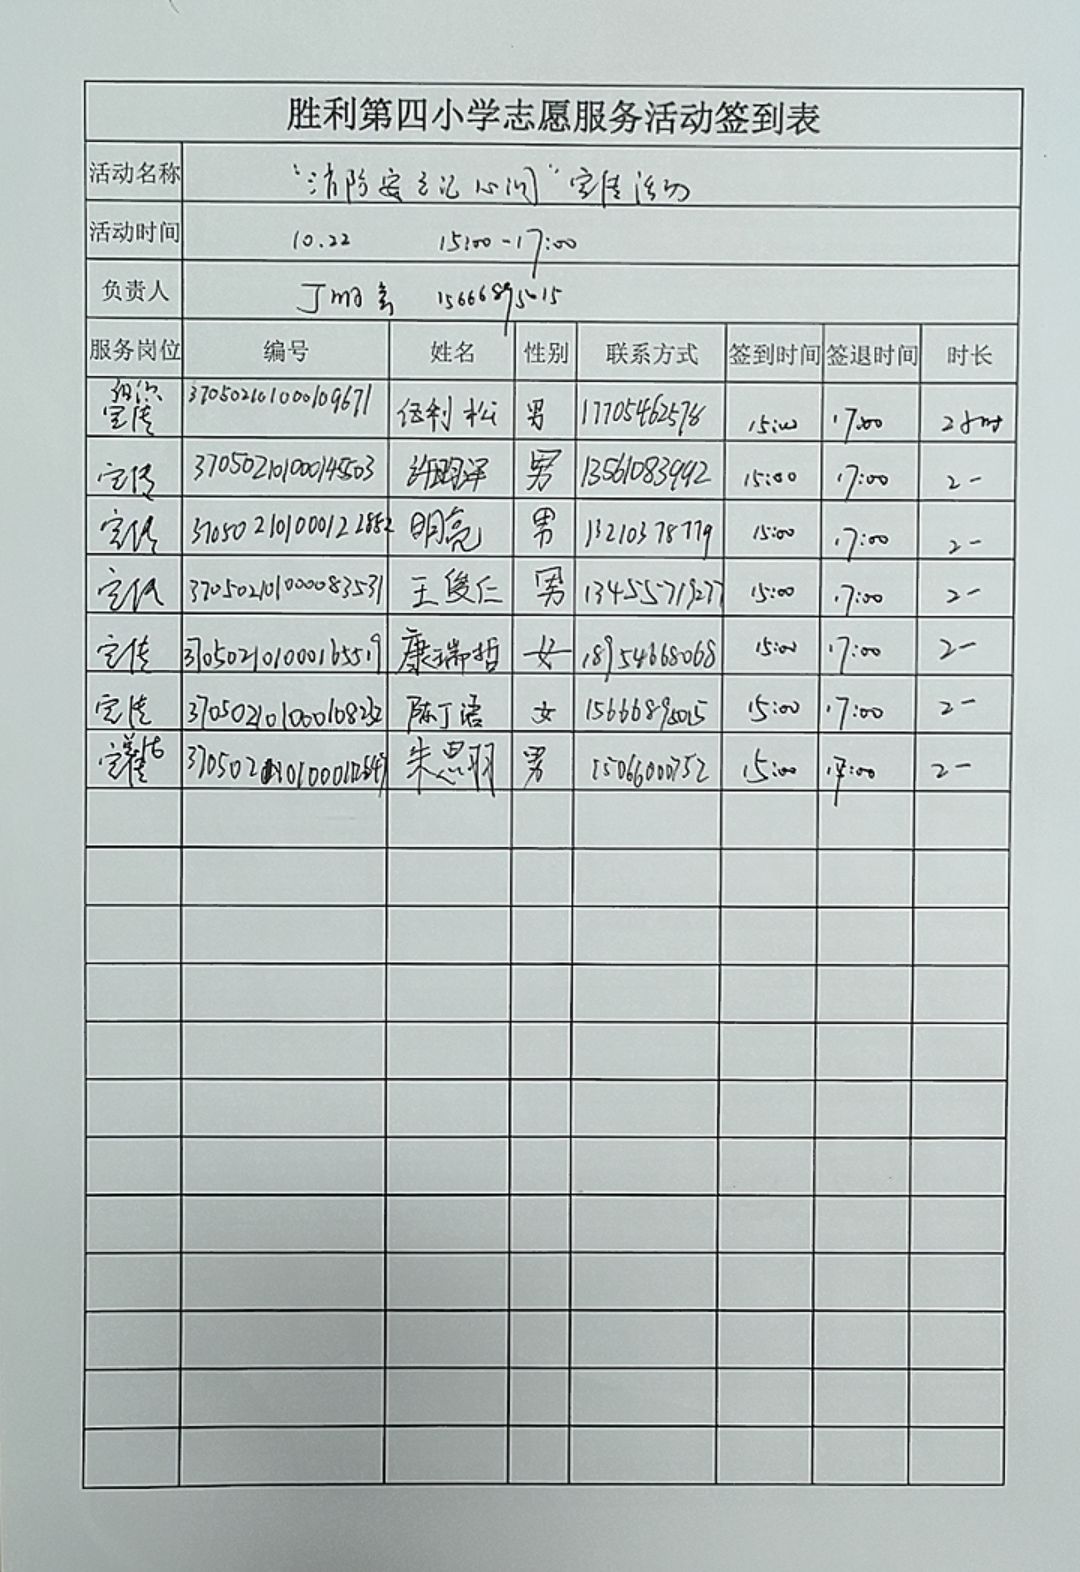 胜利第四小学志愿服务活动签到表
活动名称 "消防安全记心间"宣传活动
活动时间 10.22 15:00-17:00
负责人 丁明 15666895015
服务岗位 编号 姓名 性别 联系方式 签到时间 签退时间 时长
组织宣传 370502101000109671 任利松 男 17705462578 15:00 17:00 2小时
宣传 370502101000145503 许珈泽 男 13561083992 15:00 17:00 2-
宣传 370502101000122882 明亮 男 13210378779 15:00 17:00 2-
宣传 370502101000083531 王俊仁 男 13455571927 15:00 17:00 2-
宣传 370502101000165519 康瑞哲 女 18954668068 15:00 17:00 2-
宣传 370502101000108232 陈丁语 女 15666895015 15:00 17:00 2-
宣传 朱思羽 男 15066000752 15:00 17:00 2-